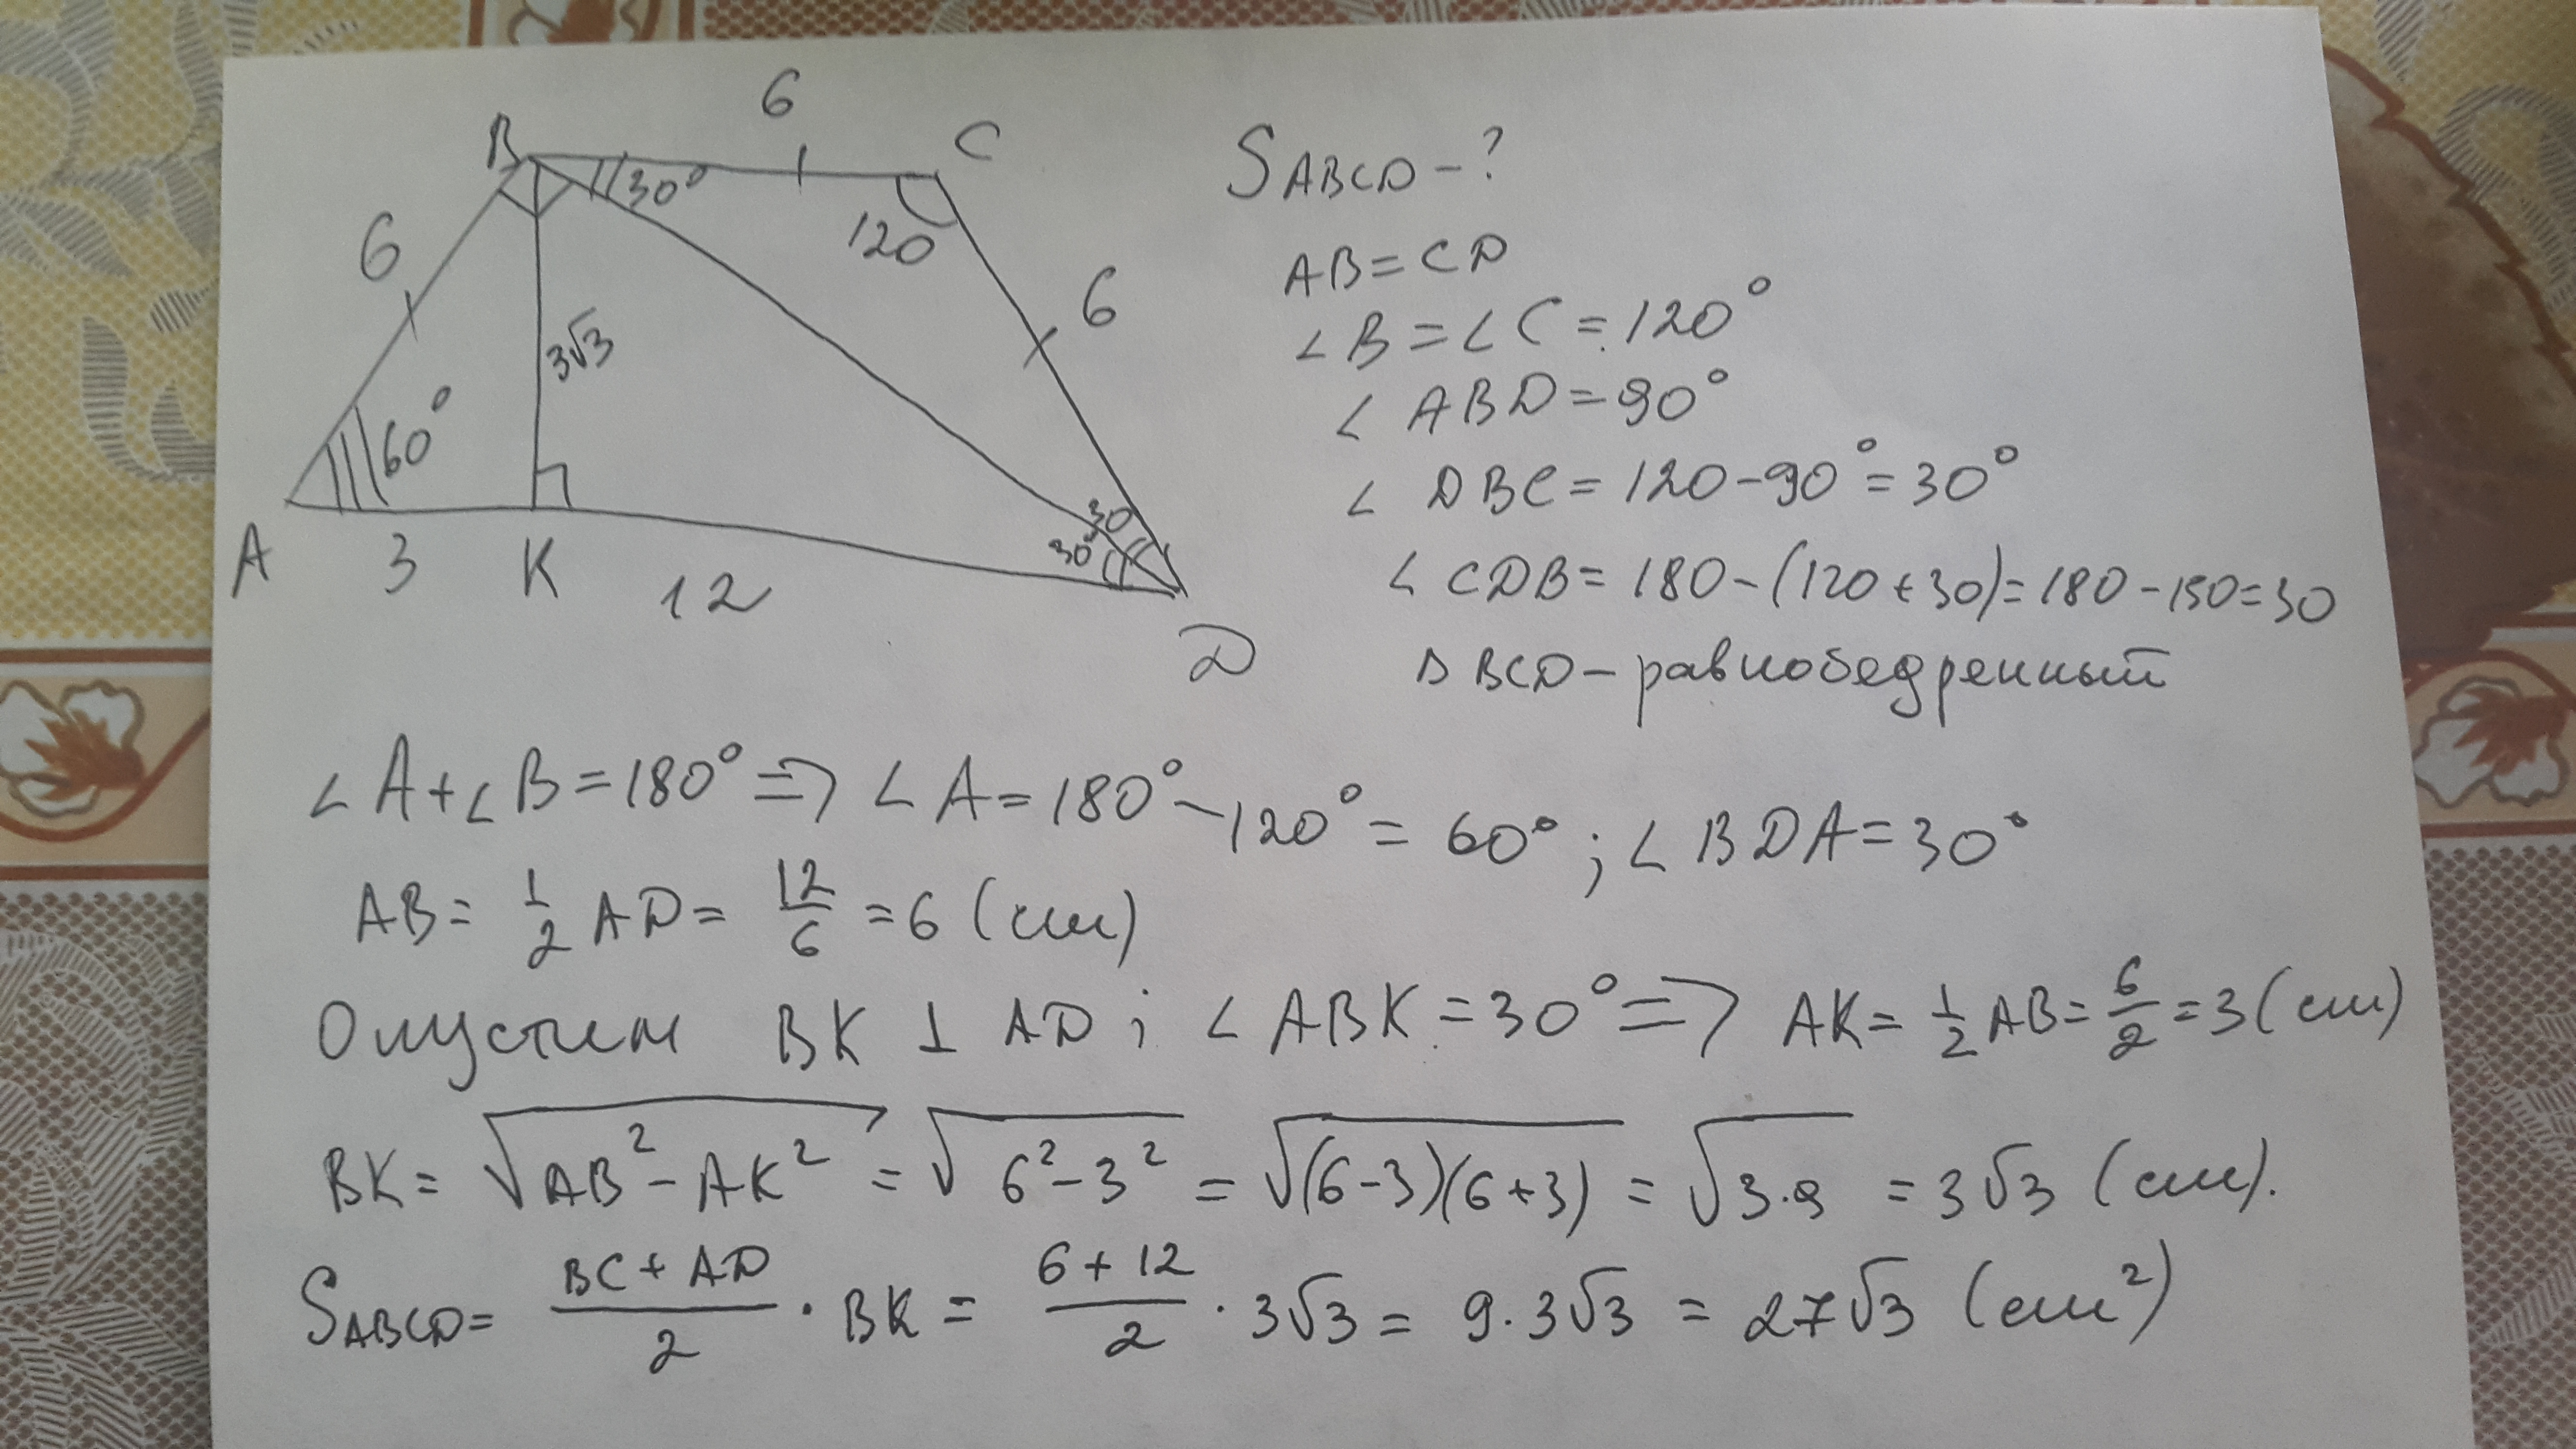 6
B
C
30°
120
6
6
3√3
60°
30
30°
A
3
K
12
D
S ABCD - ?
AB = CD
∠B = ∠C = 120°
∠ABD = 90°
∠DBC = 120 - 90° = 30°
∠CDB = 180 - (120 + 30) = 180 - 150 = 30
Δ BCD - равнобедренный
∠A + ∠B = 180° => ∠A = 180° - 120° = 60° ; ∠BDA = 30°
AB = 1/2 AD = 12/6 = 6 (см)
Опустим BK ⊥ AD ; ∠ABK = 30° => AK = 1/2 AB = 6/2 = 3 (см)
BK = √(AB² - AK²) = √(6² - 3²) = √((6-3)(6+3)) = √(3·9) = 3√3 (см).
S ABCD = (BC + AD)/2 · BK = (6 + 12)/2 · 3√3 = 9 · 3√3 = 27√3 (см²)